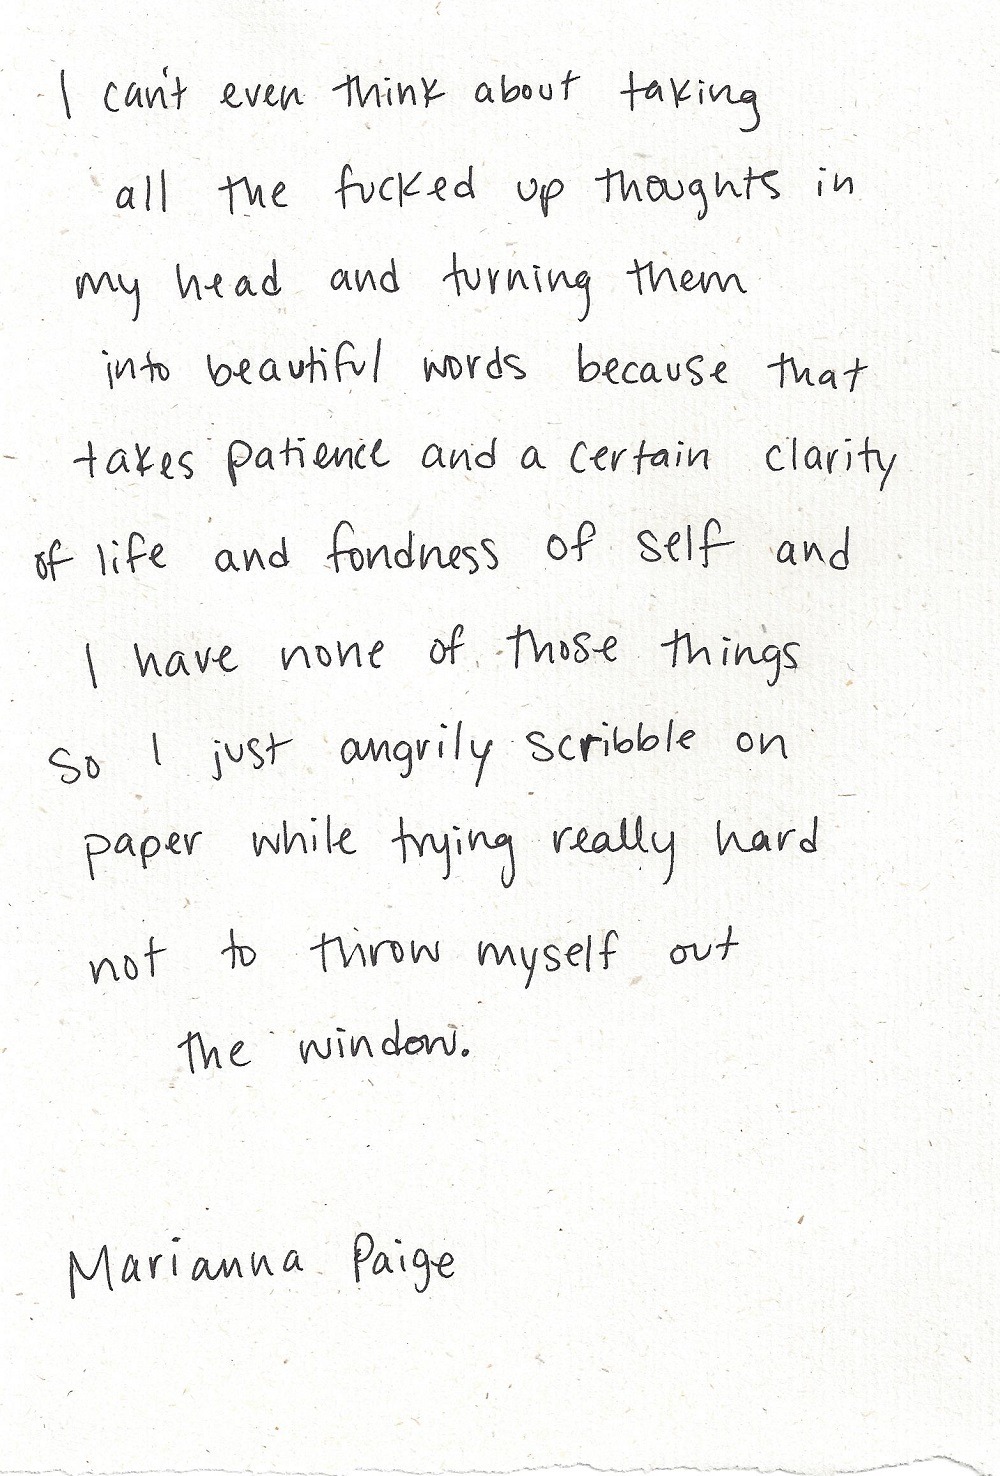 I can't even think about taking
all the fucked up thoughts in
my head and turning them
into beautiful words because that
takes patience and a certain clarity
of life and fondness of self and
I have none of those things
so I just angrily scribble on
paper while trying really hard
not to throw myself out
the window.
Marianna Paige